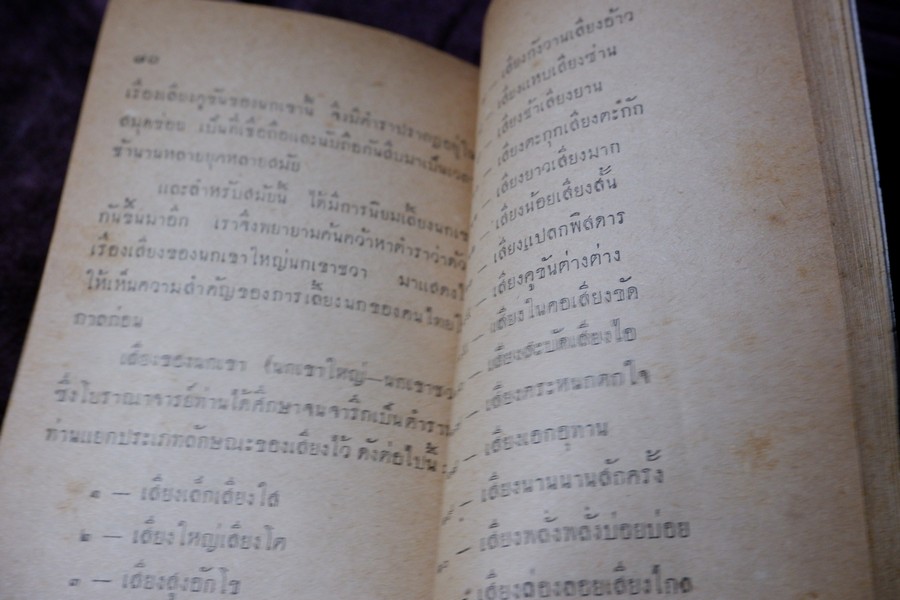 ๗๐
เรื่องเสียงคูขันของนกเขานี้ จึงมีตำราปรากฏอยู่ใน
สมุดข่อย เป็นที่เชื่อถือและนับถือกันสืบมาเป็นเวลา
ช้านานหลายยุคหลายสมัย
และสำหรับสมัยนี้ ได้มีการนิยมเลี้ยงนกเขา
กันขึ้นมาอีก เราจึงพยายามค้นคว้าหาตำราว่าด้วย
เรื่องเสียงของนกเขาใหญ่นกเขาชวา มาแสดง
ให้เห็นความสำคัญของการเลี้ยงนกของคนไทย
กาลก่อน
เสียงของนกเขา (นกเขาใหญ่—นกเขาชวา
ซึ่งโบราณาจารย์ท่านได้ศึกษาจนจารึกเป็นตำรา
ท่านแยกประเภทลักษณะของเสียงไว้ ดังต่อไปนี้
๑ — เสียงเล็กเสียงใส
๒ — เสียงใหญ่เสียงโต
๓ — เสียงสูงอักโข
— เสียงกังวานเสียงอ้าว
— เสียงแหบเสียงซ่าน
— เสียงช้าเสียงยาน
— เสียงตะกุกเสียงตะกัก
— เสียงยาวเสียงมาก
— เสียงน้อยเสียงสั้น
— เสียงแปลกพิสดาร
— เสียงคูขันต่างต่าง
— เสียงในคอเสียงขัด
— เสียงสะบัดเสียงไอ
— เสียงตระหนกตกใจ
— เสียงเอกอุทาน
— เสียงนานนานสักครั้ง
— เสียงพลั่งพลั่งบ่อยบ่อย
เสียงล่องลอยเสียงไกล